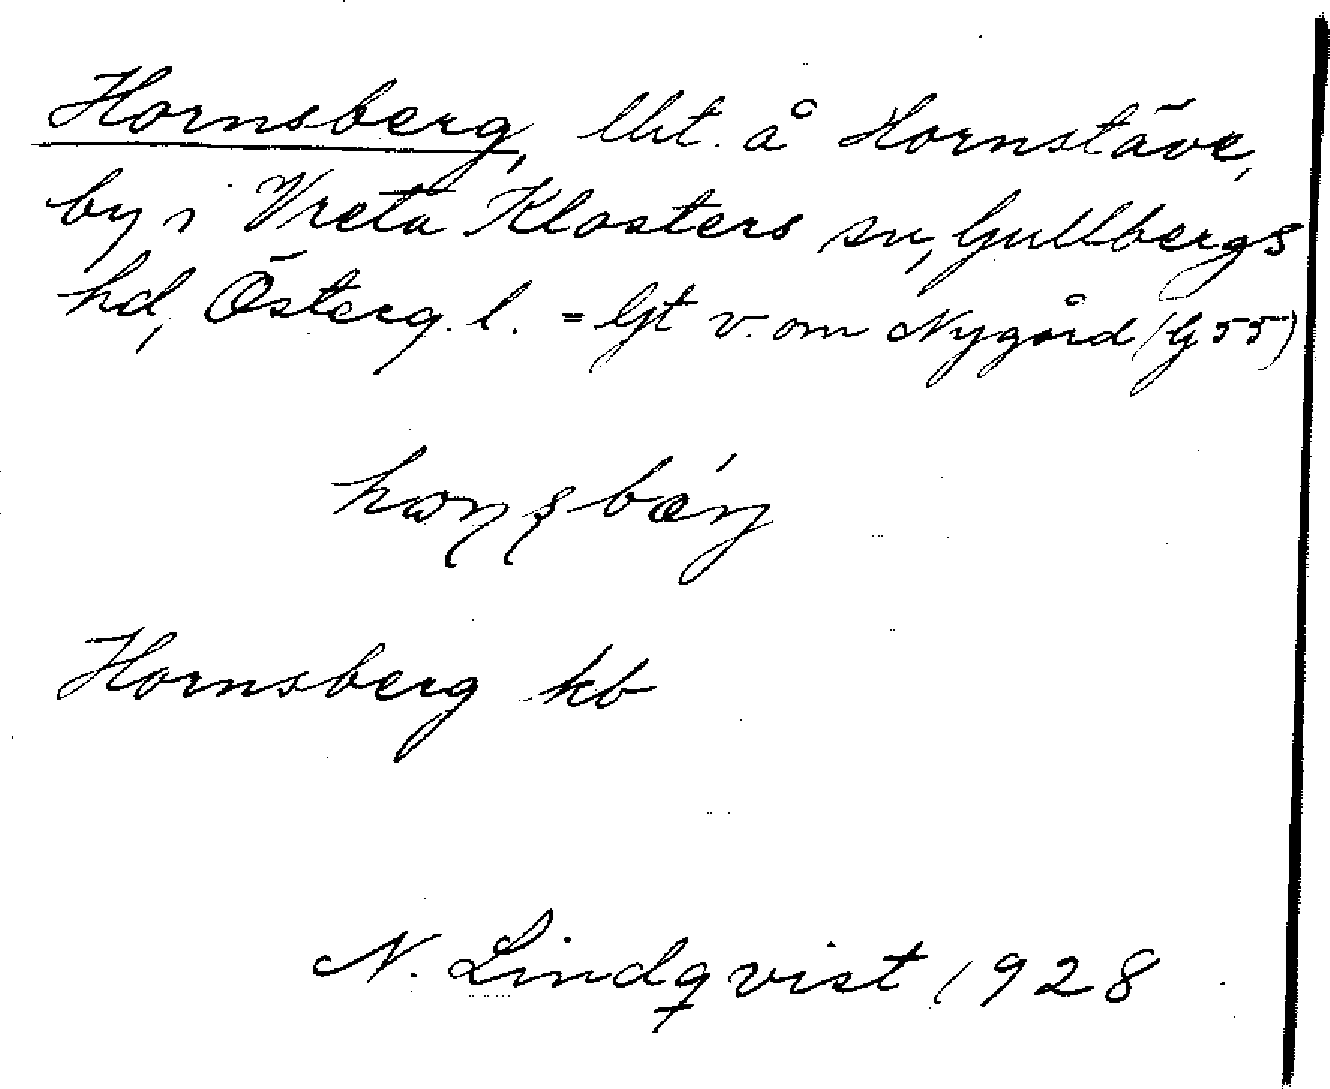 Hornsberg, lht. å Hornstäve,
by i Vreta Klosters sn, Gullbergs
hd, Österg. l. = lgt v. om Nygård (G 55)
Hornsberg kb
N. Lindqvist 1928